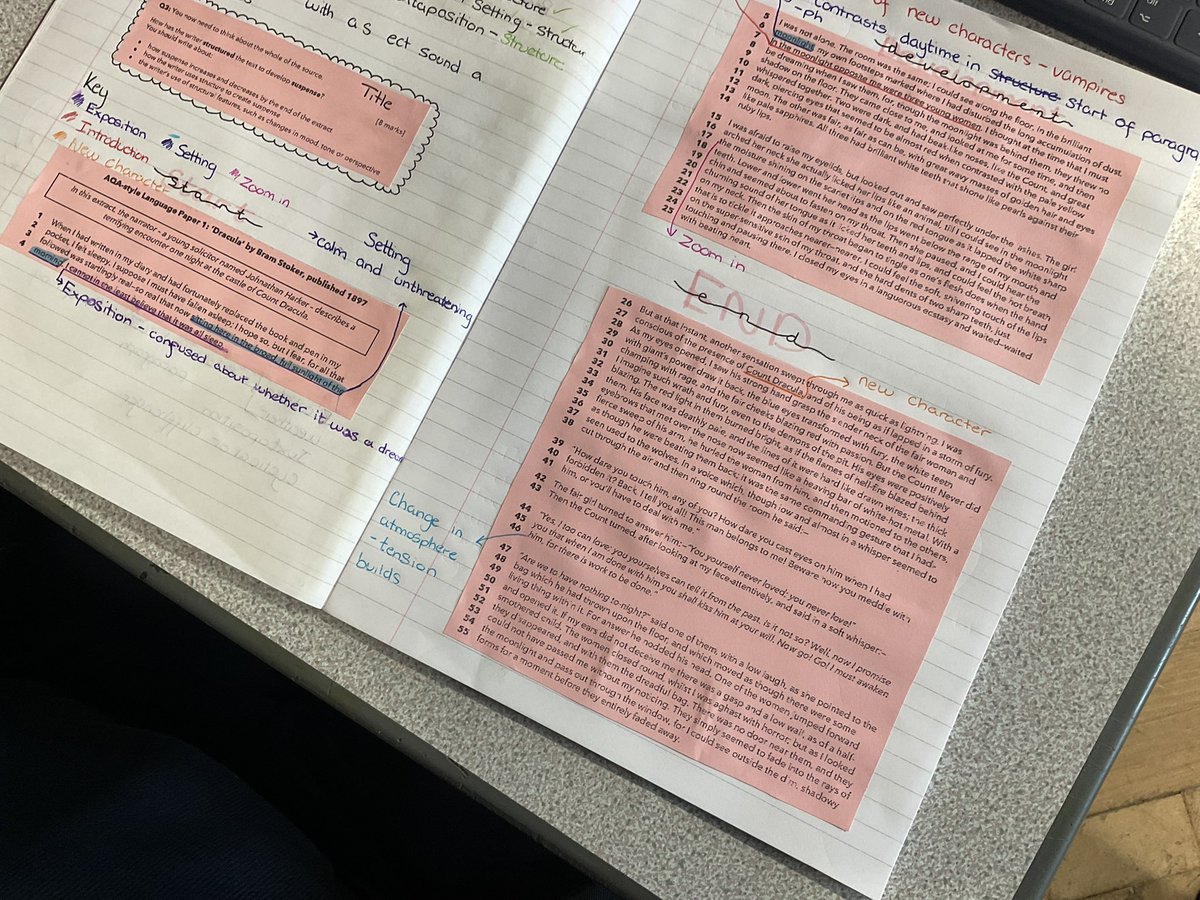 Setting - structure
with as ect sound a
Juxtaposition - Structure
Q3: You now need to think about the whole of the source.
How has the writer structured the text to develop suspense?
You should write about:
how suspense increases and decreases by the end of the extract
how the writer uses structure to create suspense
the writer's use of structural features, such as changes in mood, tone or perspective
[8 marks]
Title
Key
Exposition
Introduction
New character
Setting
Zoom in
Start
AQA-style Language Paper 1: 'Dracula' by Bram Stoker, published 1897
In this extract, the narrator - a young solicitor named Johnathan Harker - describes a
terrifying encounter one night at the castle of Count Dracula.
1 When I had written in my diary and had fortunately replaced the book and pen in my
2 pocket, I felt sleepy. I suppose I must have fallen asleep; I hope so, but I fear, for all that
3 followed was startlingly real-so real that now sitting here in the broad, full sunlight of the
4 morning, I cannot in the least believe that it was all sleep.
Setting
→ calm and unthreatening
Exposition - confused about whether it was a dream
of new characters - vampires
contrasts daytime in Structure Start of paragra
- ph
development
5 I was not alone. The room was the same; I could see along the floor, in the brilliant
6 moonlight, my own footsteps marked where I had disturbed the long accumulation of dust.
7 In the moonlight opposite me were three young women. I thought at the time that I must
8 be dreaming when I saw them, for, though the moonlight was behind them, they threw no
9 shadow on the floor. They came close to me, and looked at me for some time, and then
10 whispered together. Two were dark, and had beak like noses, like the Count, and great
11 dark, piercing eyes that seemed to be almost red when contrasted with the pale yellow
12 moon. The other was fair, as fair as can be, with great wavy masses of golden hair and eyes
13 like pale sapphires. All three had brilliant white teeth that shone like pearls against their
14 ruby lips.
15 I was afraid to raise my eyelids, but looked out and saw perfectly under the lashes. The girl
16 arched her neck she actually licked her lips like an animal, till I could see in the moonlight
the moisture shining on the scarlet lips and on the red tongue as it lapped the white sharp
18 teeth. Lower and lower went her head as the lips went below the range of my mouth and
19 chin and seemed about to fasten on my throat. Then she paused, and I could hear the
20 churning sound of her tongue as it licked her teeth and lips, and could feel the hot breath
21 on my neck. Then the skin of my throat began to tingle as one's flesh does when the hand
22 that is to tickle it approaches nearer--nearer. I could feel the soft, shivering touch of the lips
23 on the super-sensitive skin of my throat, and the hard dents of two sharp teeth, just
24 touching and pausing there. I closed my eyes in a languorous ecstasy and waited--waited
25 beating heart.
Zoom in
END
end
26 But at that instant, another sensation swept through me as quick as lightning. I was
27 conscious of the presence of Count Dracula, and of his being as if lapped in a storm of fury.
28 As my eyes opened, I saw his strong hand grasp the slender neck of the fair woman and
29 with giant's power draw it back, the blue eyes transformed with fury, the white teeth
30 champing with rage, and the fair cheeks blazing red with passion. But the Count! Never did
31 I imagine such wrath and fury, even to the demons of the pit. His eyes were positively
32 blazing. The red light in them burned bright, as if the flames of hell-fire blazed behind
33 them. His face was deathly pale, and the lines of it were hard like drawn wires; the thick
34 eyebrows that met over the nose now seemed like a heaving bar of white-hot metal. With a
35 fierce sweep of his arm, he hurled the woman from him, and then motioned to the others,
36 as though he were beating them back; it was the same commanding gesture that I had
37 seen used to the wolves. In a voice which, though low and almost in a whisper seemed to
38 cut through the air and then ring round the room he said:--
39 "How dare you touch him, any of you? How dare you cast eyes on him when I had
40 forbidden it? Back, I tell you all! This man belongs to me! Beware how you meddle with
41 him, or you'll have to deal with me."
42 The fair girl turned to answer him:-- "You yourself never loved; you never love!"
43 Then the Count turned, after looking at my face attentively, and said in a soft whisper:--
44 "Yes, I too can love; you yourselves can tell it from the past. Is it not so? Well, now I promise
45 you that when I am done with him you shall kiss him at your will. Now go! Go! I must awaken
46 him, for there is work to be done."
47 "Are we to have nothing to-night?" said one of them, with a low laugh, as she pointed to the
48 bag which he had thrown upon the floor, and which moved as though there were some
49 living thing within it. For answer he nodded his head. One of the women jumped forward
50 and opened it. If my ears did not deceive me there was a gasp and a low wail, as of a half-
51 smothered child. The women closed round, whilst I was aghast with horror; but as I looked
52 they disappeared, and with them the dreadful bag. There was no door near them, and they
53 could not have passed me without my noticing. They simply seemed to fade into the rays of
54 the moonlight and pass out through the window, for I could see outside the dim, shadowy
55 forms for a moment before they entirely faded away.
new character
Change in
atmosphere
- tension
builds